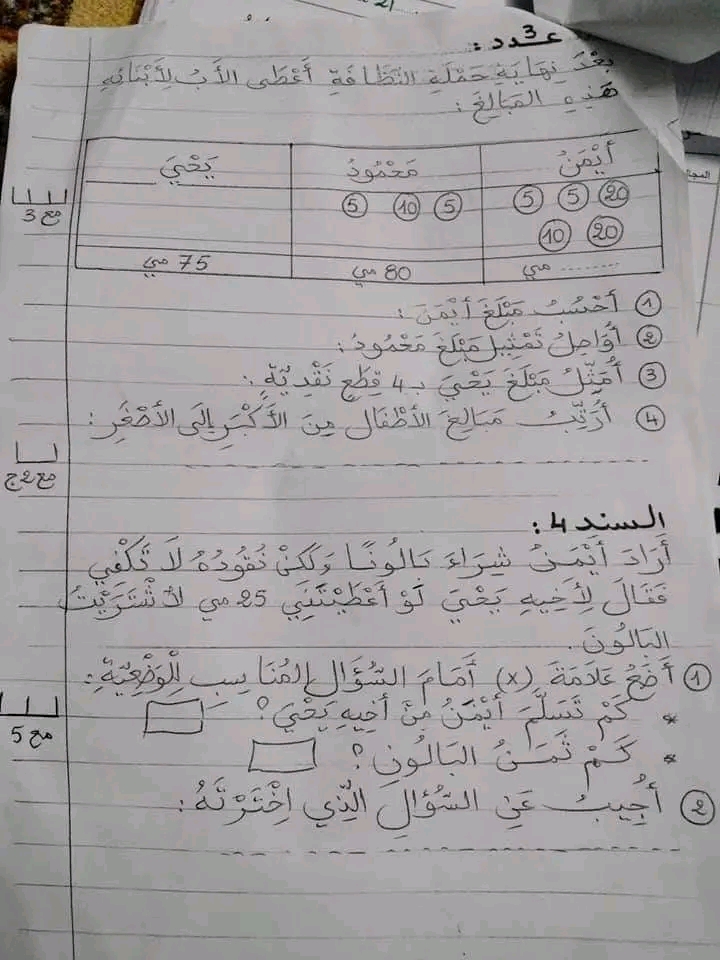 عـــدد 3 :
بَعْدَ نِهَايَةِ حَمْلَةِ النَّظَافَةِ أَعْطَى الأَبُ لِأَبْنَائِهِ
هَذِهِ المَبَالِغَ :
أَيْمَنُ مَحْمُودٌ يَحْيَ
20 5 5 5 10 5
20 10
........ مي 80 مي 75 مي
مع 3
① أَحْسُبُ مَبْلَغَ أَيْمَنَ :
② أُوَاصِلُ تَمْثِيلَ مَبْلَغَ مَحْمُودٌ :
③ أُمَثِّلُ مَبْلَغَ يَحْيَ بـ 4 قِطَعٍ نَقْدِيَّةٍ :
④ أُرَتِّبُ مَبَالِغَ الأَطْفَالِ مِنَ الأَكْبَرِ إِلَى الأَصْغَرِ :
مع 2ج
السند 4 :
أَرَادَ أَيْمَنُ شِرَاءَ بَالُونًا وَلَكِنْ نُقُودُهُ لَا تَكْفِي
فَقَالَ لِأَخِيهِ يَحْيَ لَوْ أَعْطَيْتَنِي 25 مي لَاشْتَرَيْتُ
البَالُونَ .
① أَضَعُ عَلَامَةَ (x) أَمَامَ السُّؤَالِ المُنَاسِبِ لِلْوَضْعِيَّةِ :
* كَمْ تَسَلَّمَ أَيْمَنُ مِنْ أَخِيهِ يَحْيَ ؟
مع 5
* كَمْ ثَمَنُ البَالُونِ ؟
② أُجِيبُ عَنِ السُّؤَالِ الَّذِي اِخْتَرْتَهُ :